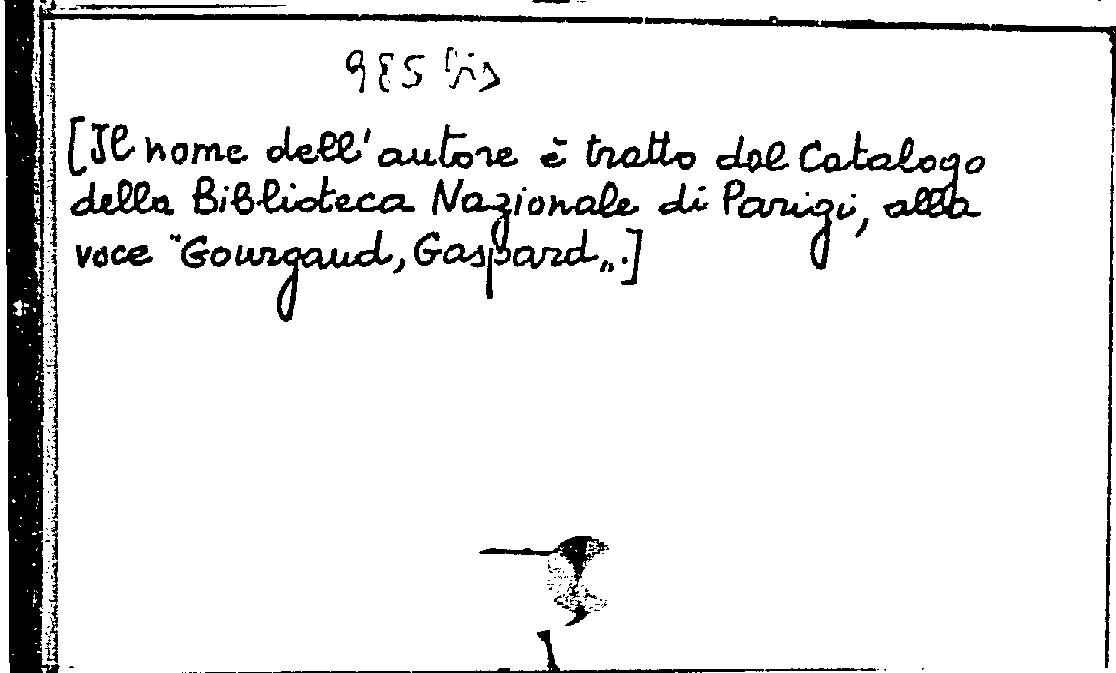 985 bis
[Il nome dell'autore è tratto dal Catalogo
della Biblioteca Nazionale di Parigi, alla
voce "Gourgaud, Gaspard„.]